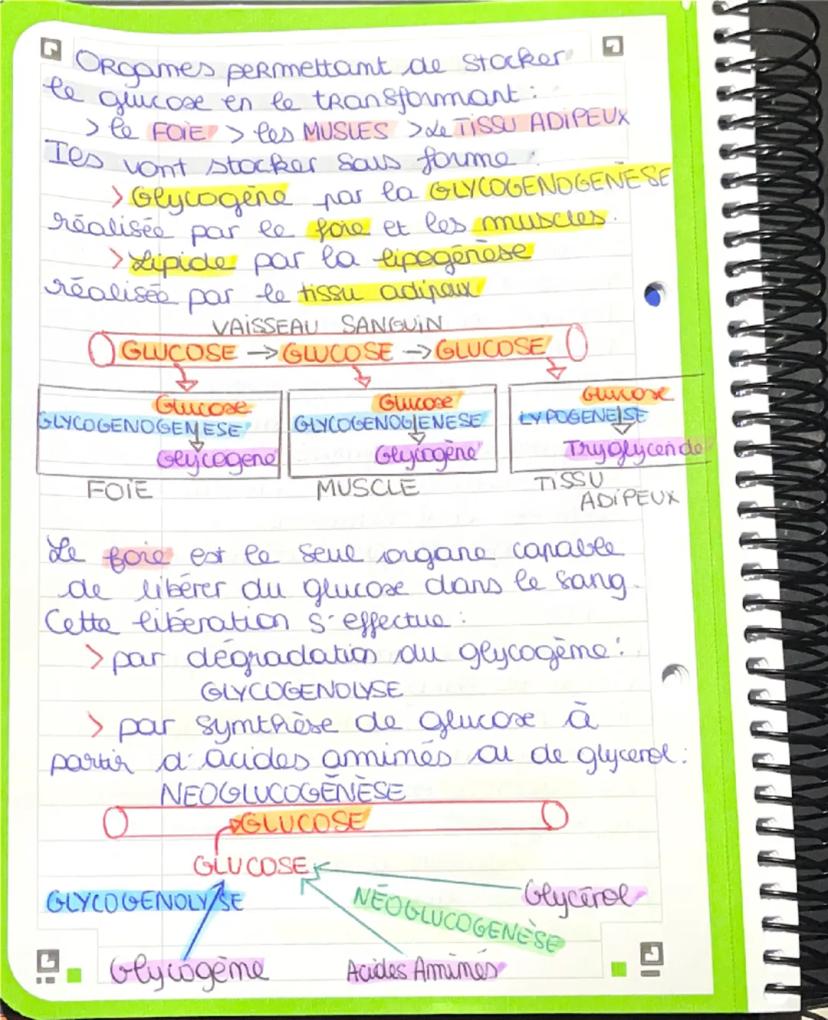 Organes permettant de stocker
le glucose en le transformant :
> le FOIE > les MUSLES > Le TISSU ADIPEUX
Iles vont stocker sous forme :
> Glycogène par la GLYCOGENOGENÈSE
réalisée par le foie et les muscles.
> Lipide par la lipogénèse
réalisée par le tissu adipeux
VAISSEAU SANGUIN
GLUCOSE → GLUCOSE → GLUCOSE
Glucose Glucose Glucose
GLYCOGENOGENESE GLYCOGENOGENESE LYPOGENESE
Glycogene Glycogène Tryglyceride
FOIE MUSCLE TISSU
ADIPEUX
Le foie est le seul organe capable
de libérer du glucose dans le sang.
Cette libération s'effectue :
> par dégradation du glycogène :
GLYCOGENOLYSE
> par synthèse de glucose à
partir d'acides aminés ou de glycerol :
NEOGLUCOGÉNÈSE
GLUCOSE
GLUCOSE
Glycérol
GLYCOGENOLYSE NÉOGLUCOGENÈSE
Glycogène Acides Aminés